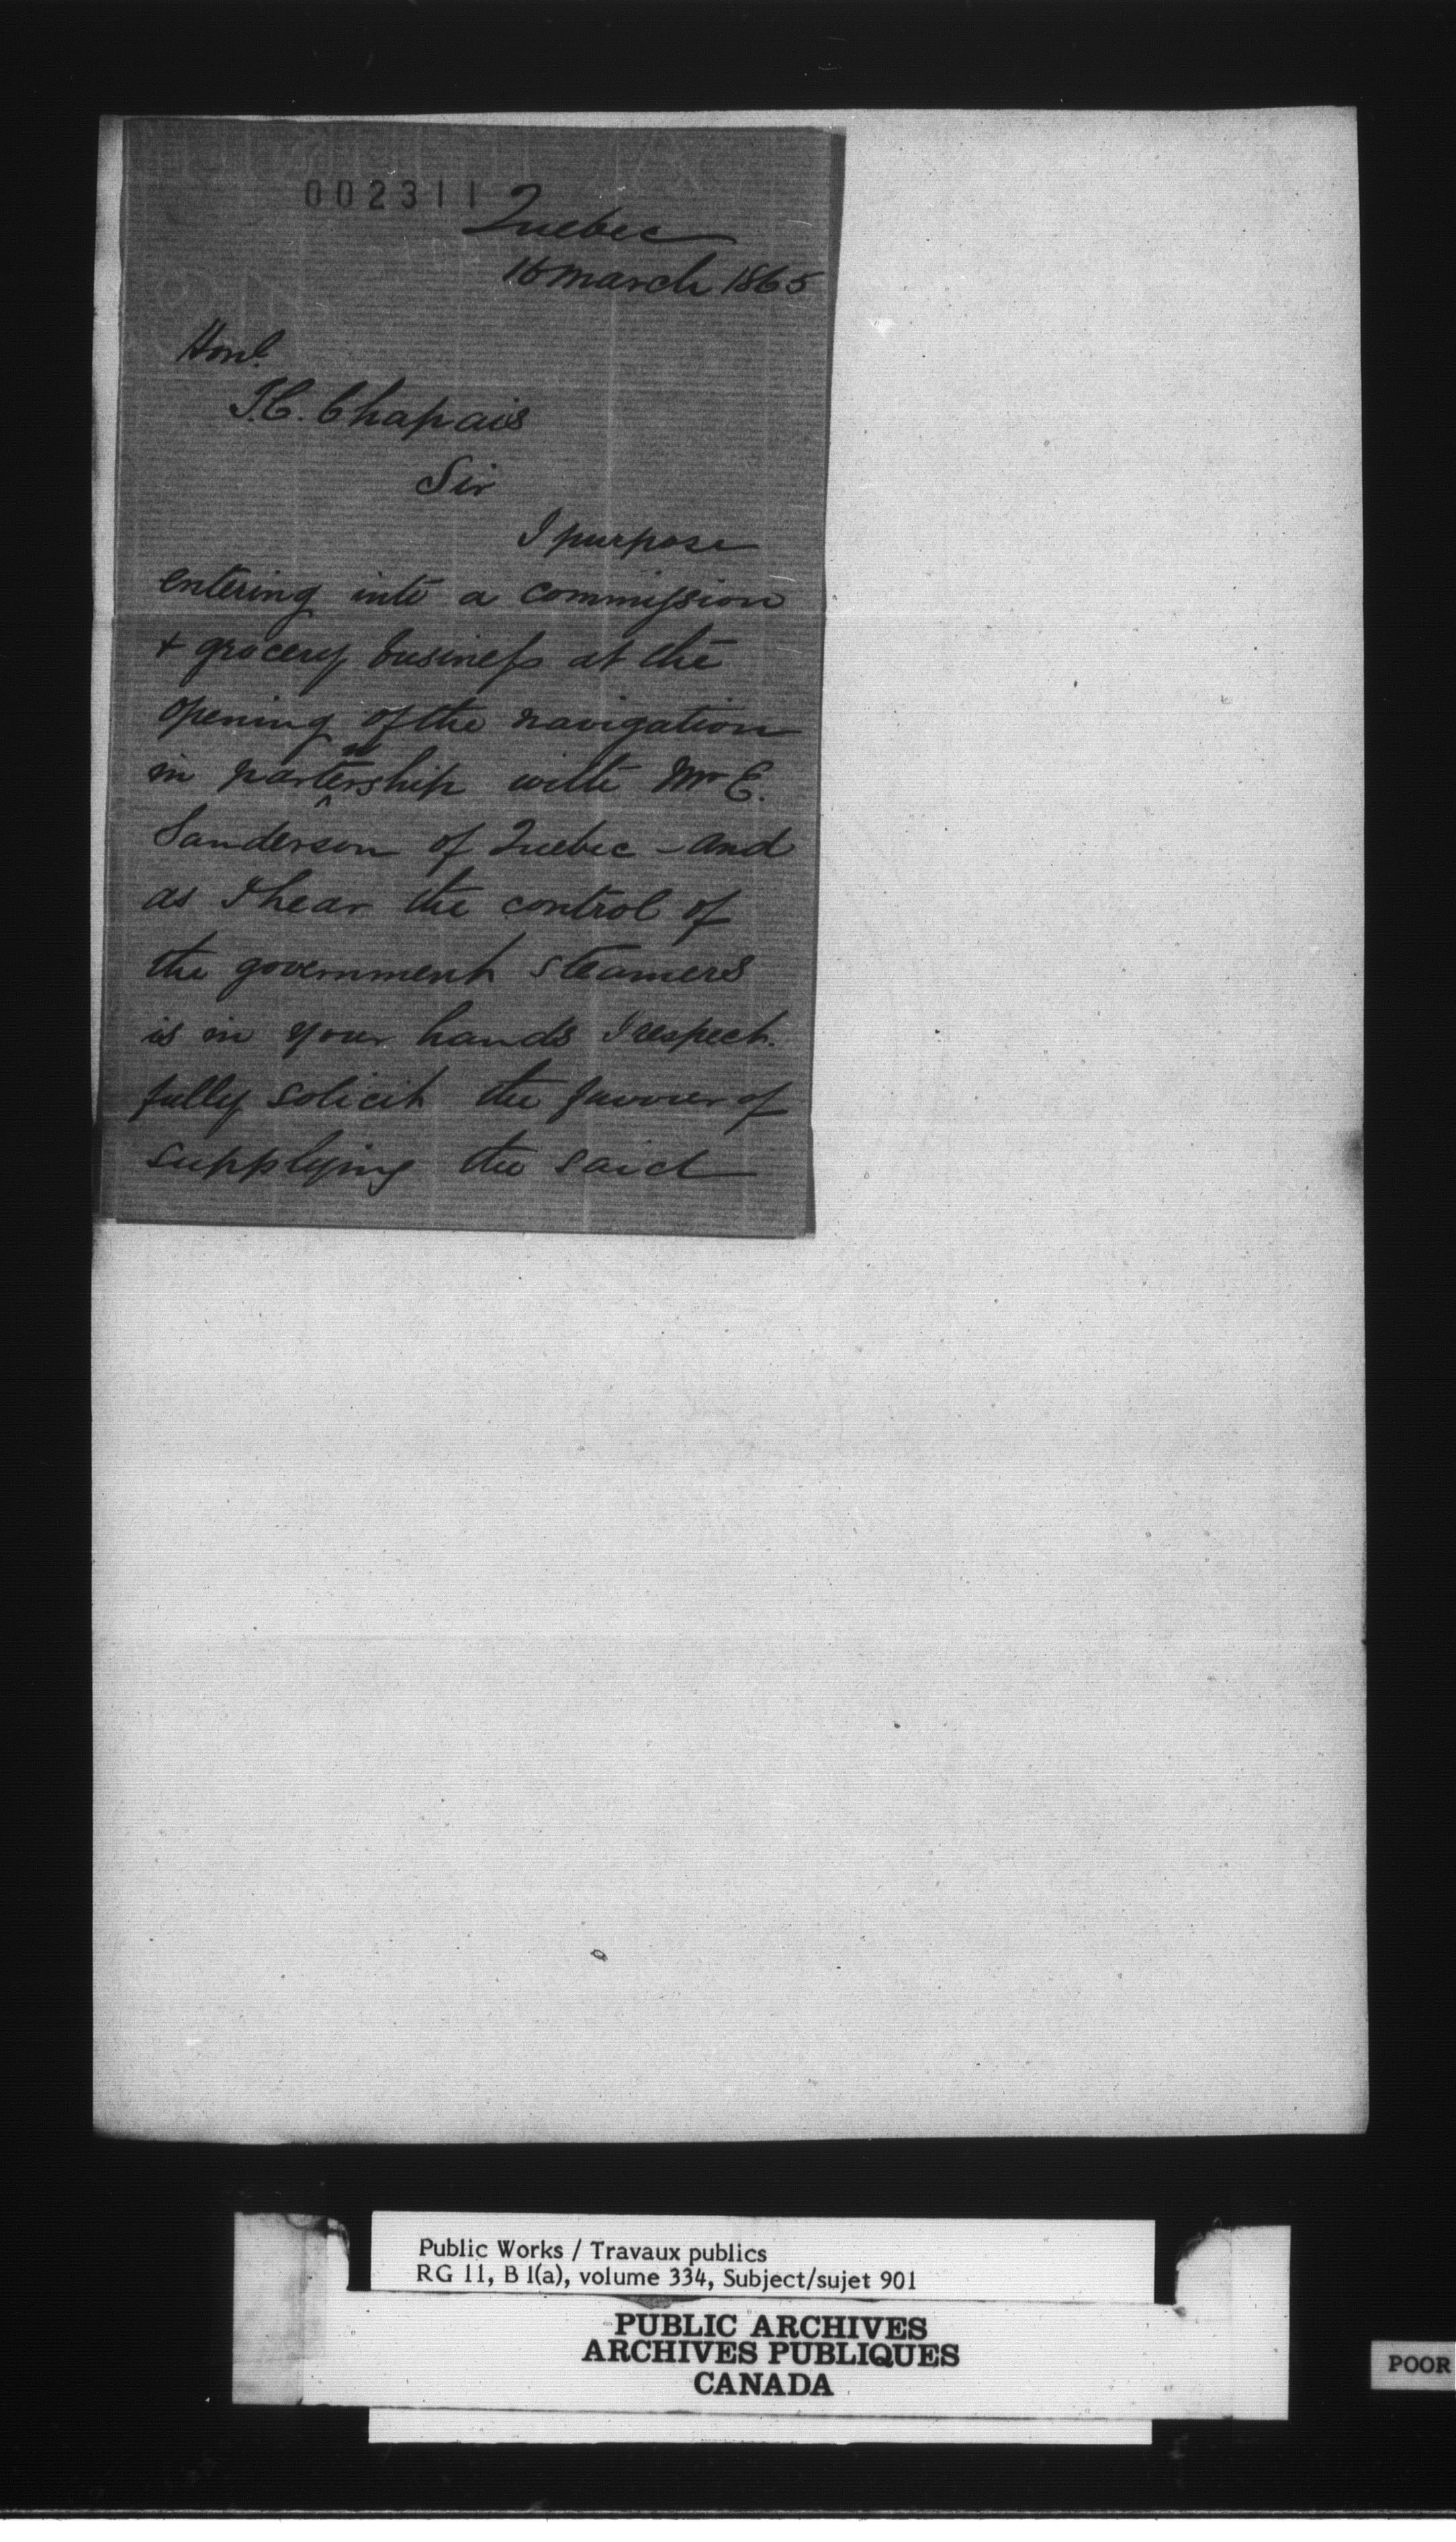 002311
Quebec
16 march 1865
Honl.
J.C. Chapais
Sir
I purpose
entering into a commission
+ grocery business at the
opening of the navigation
in partnership with Mr E.
Sanderson of Quebec - and
as I hear the control of
the government steamers
is in your hands I respect.
fully solicit the favour of
supplying the said
Public Works / Travaux publics
RG 11, B 1(a), volume 334, Subject/sujet 901
PUBLIC ARCHIVES
ARCHIVES PUBLIQUES
CANADA
POOR